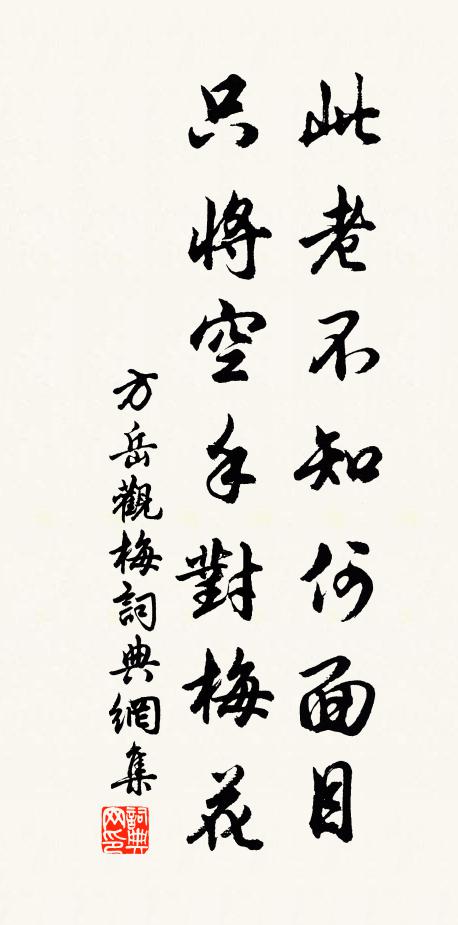 此老不知何面目
只將空手對梅花
方岳觀梅詞典網集
詞典
网印